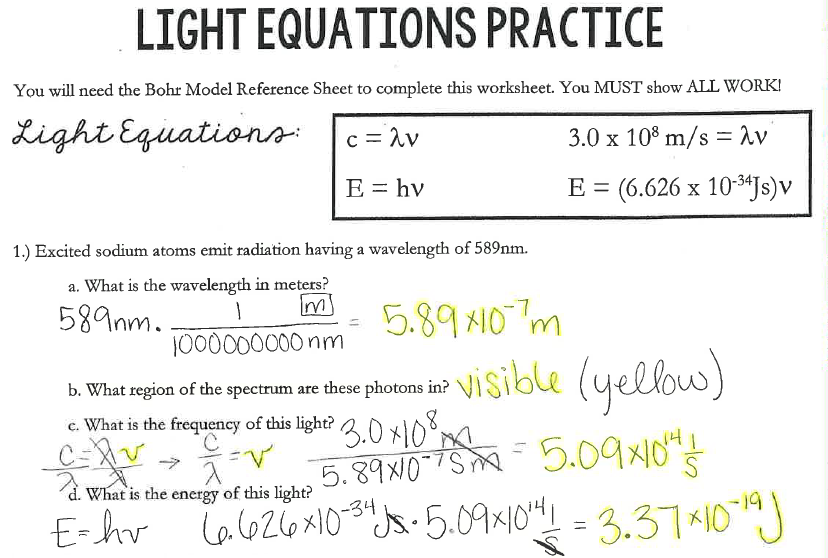 LIGHT EQUATIONS PRACTICE
You will need the Bohr Model Reference Sheet to complete this worksheet. You MUST show ALL WORK!
Light Equations:
c = λν 3.0 x 10⁸ m/s = λν
E = hν E = (6.626 x 10⁻³⁴Js)ν
1.) Excited sodium atoms emit radiation having a wavelength of 589nm.
a. What is the wavelength in meters?
589nm. 1 m / 1000000000 nm = 5.89 x10⁻⁷ m
b. What region of the spectrum are these photons in? visible (yellow)
c. What is the frequency of this light?
C/λ = λν/λ → C/λ = ν 3.0 x10⁸ m / 5.89x10⁻⁷ s m = 5.09x10¹⁴ 1/s
d. What is the energy of this light?
E=hν 6.626 x10⁻³⁴ Js · 5.09x10¹⁴ 1/s = 3.37x10⁻¹⁹ J